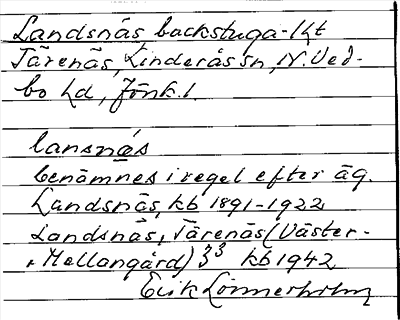 Landsnäs backstuga - lht
Tärenäs, Linderås sn, N. Ved-
bo hd, Jönk. l.
lansnäs
benämnes i regel efter äg.
Landsnäs, kb 1891-1922
Landsnäs, Tärenäs (Väster-
o. Mellangård) kb 1942
Erik Lönnerholm